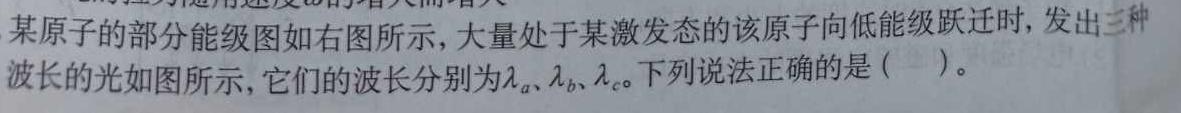 某原子的部分能级图如右图所示,大量处于某激发态的该原子向低能级跃迁时,发出三种
波长的光如图所示,它们的波长分别为λₐ、λ_b、λ_c。下列说法正确的是(　　)。